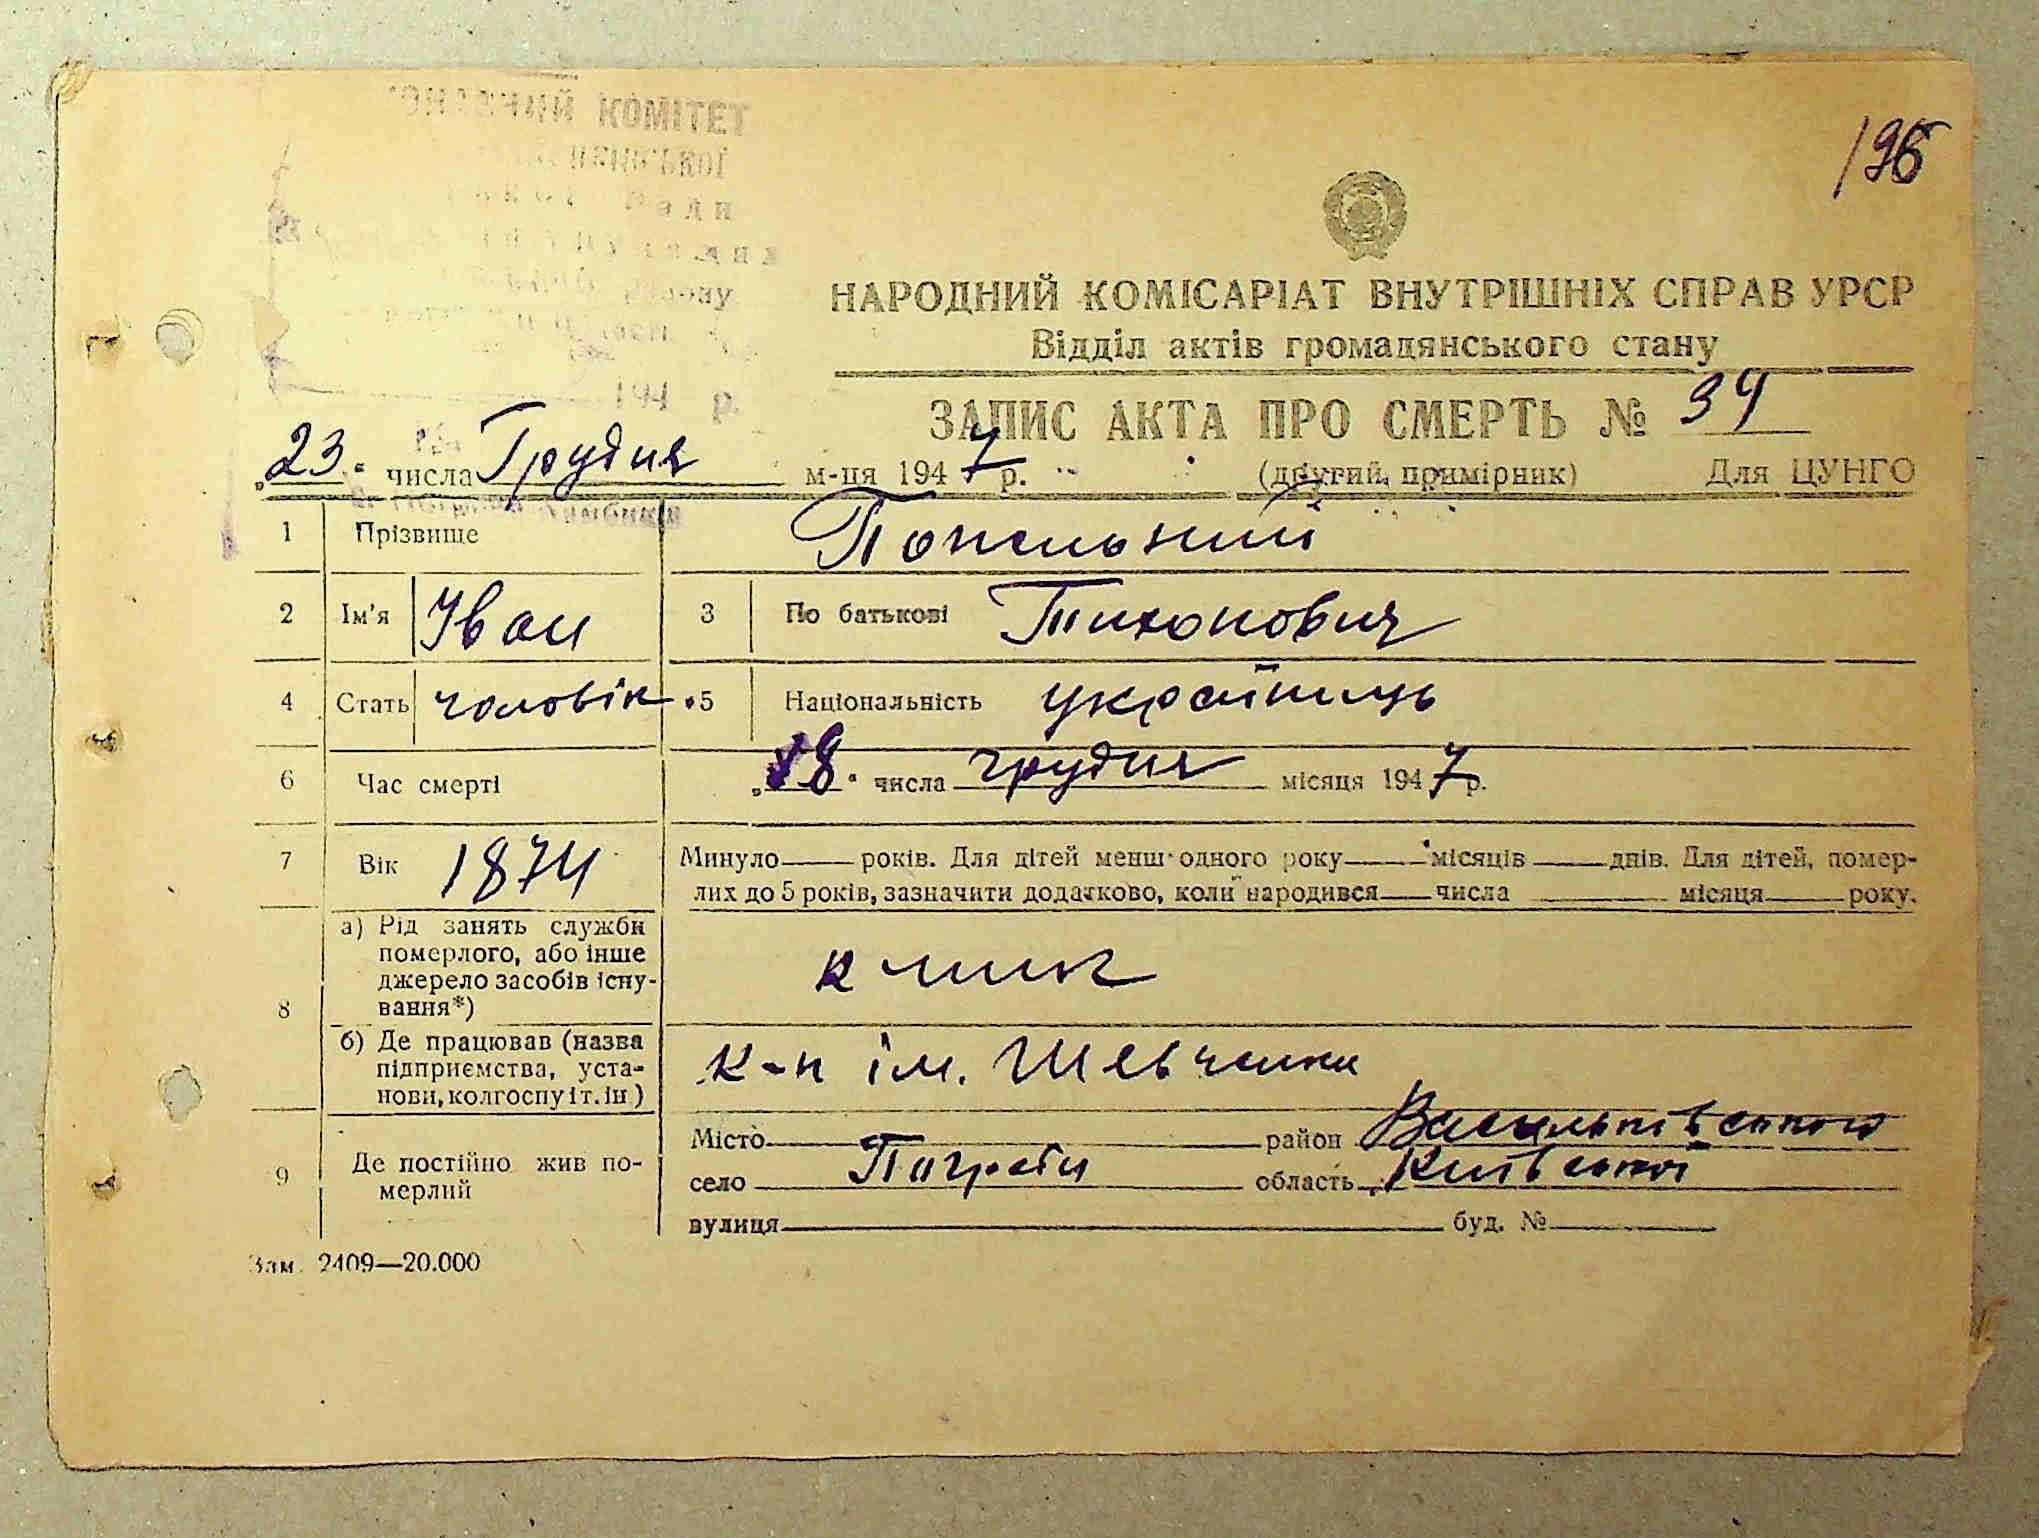 КОМІТЕТ
196
НАРОДНИЙ КОМІСАРІАТ ВНУТРІШНІХ СПРАВ УРСР
Відділ актів громадянського стану
194 р.
ЗАПИС АКТА ПРО СМЕРТЬ № 34
„23“ числа Грудня м-ця 1947 р. (другий примірник) Для ЦУНГО
1 Прізвище Попельний
2 Ім'я Іван 3 По батькові Тихонович
4 Стать чоловік 5 Національність українець
6 Час смерті „18“ числа грудня місяця 1947 р.
7 Вік 1874 Минуло років. Для дітей менш одного року місяців днів. Для дітей, помер-
лих до 5 років, зазначити додатково, коли народився числа місяця року.
8 а) Рід занять служби
померлого, або інше
джерело засобів існу-
вання*)
к-ник
б) Де працював (назва
підприємства, уста-
нови, колгоспу і т. ін)
к-п ім. Шевченка
9 Де постійно жив по-
мерлий
Місто район Васильківського
село Погреби область Київської
вулиця буд. №
Зам. 2409—20.000